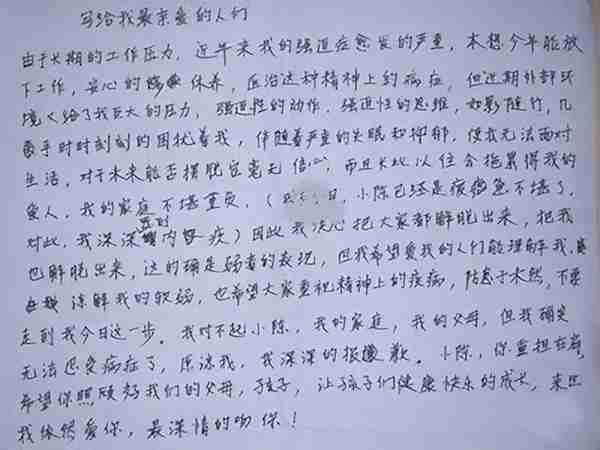 写给我最亲爱的人们
由于长期的工作压力，近年来我的强迫症愈发的严重，本想今年能放
下工作，安心的 保养，医治这种精神上的病症，但近期外部环
境又给了我巨大的压力，强迫性的动作，强迫性的思维，如影随行，几
乎时时刻刻的困扰着我，伴随着严重的失眠和抑郁，使我无法面对
生活，对于未来能否摆脱它毫无信心，而且长此以往会拖累得我的
爱人，我的家庭不堪重负，（ 小陈已经是疲惫不堪了，
对此，我深深 内疚）因此我决心把大家都解脱出来，把我
也解脱出来，这的确是弱者的表现，但我希望爱我的人们能理解我，
谅解我的软弱，也希望大家重视精神上的疾病，防患于未然，不要
走到我今日这一步。我对不起小陈，我的家庭，我的父母，但我确实
无法忍受病症了，原谅我，我深深的报歉。小陈，你重担在肩，
希望你照顾好我们的父母，孩子，让孩子们健康快乐的成长，来世
我依然爱你，最深情的吻你！